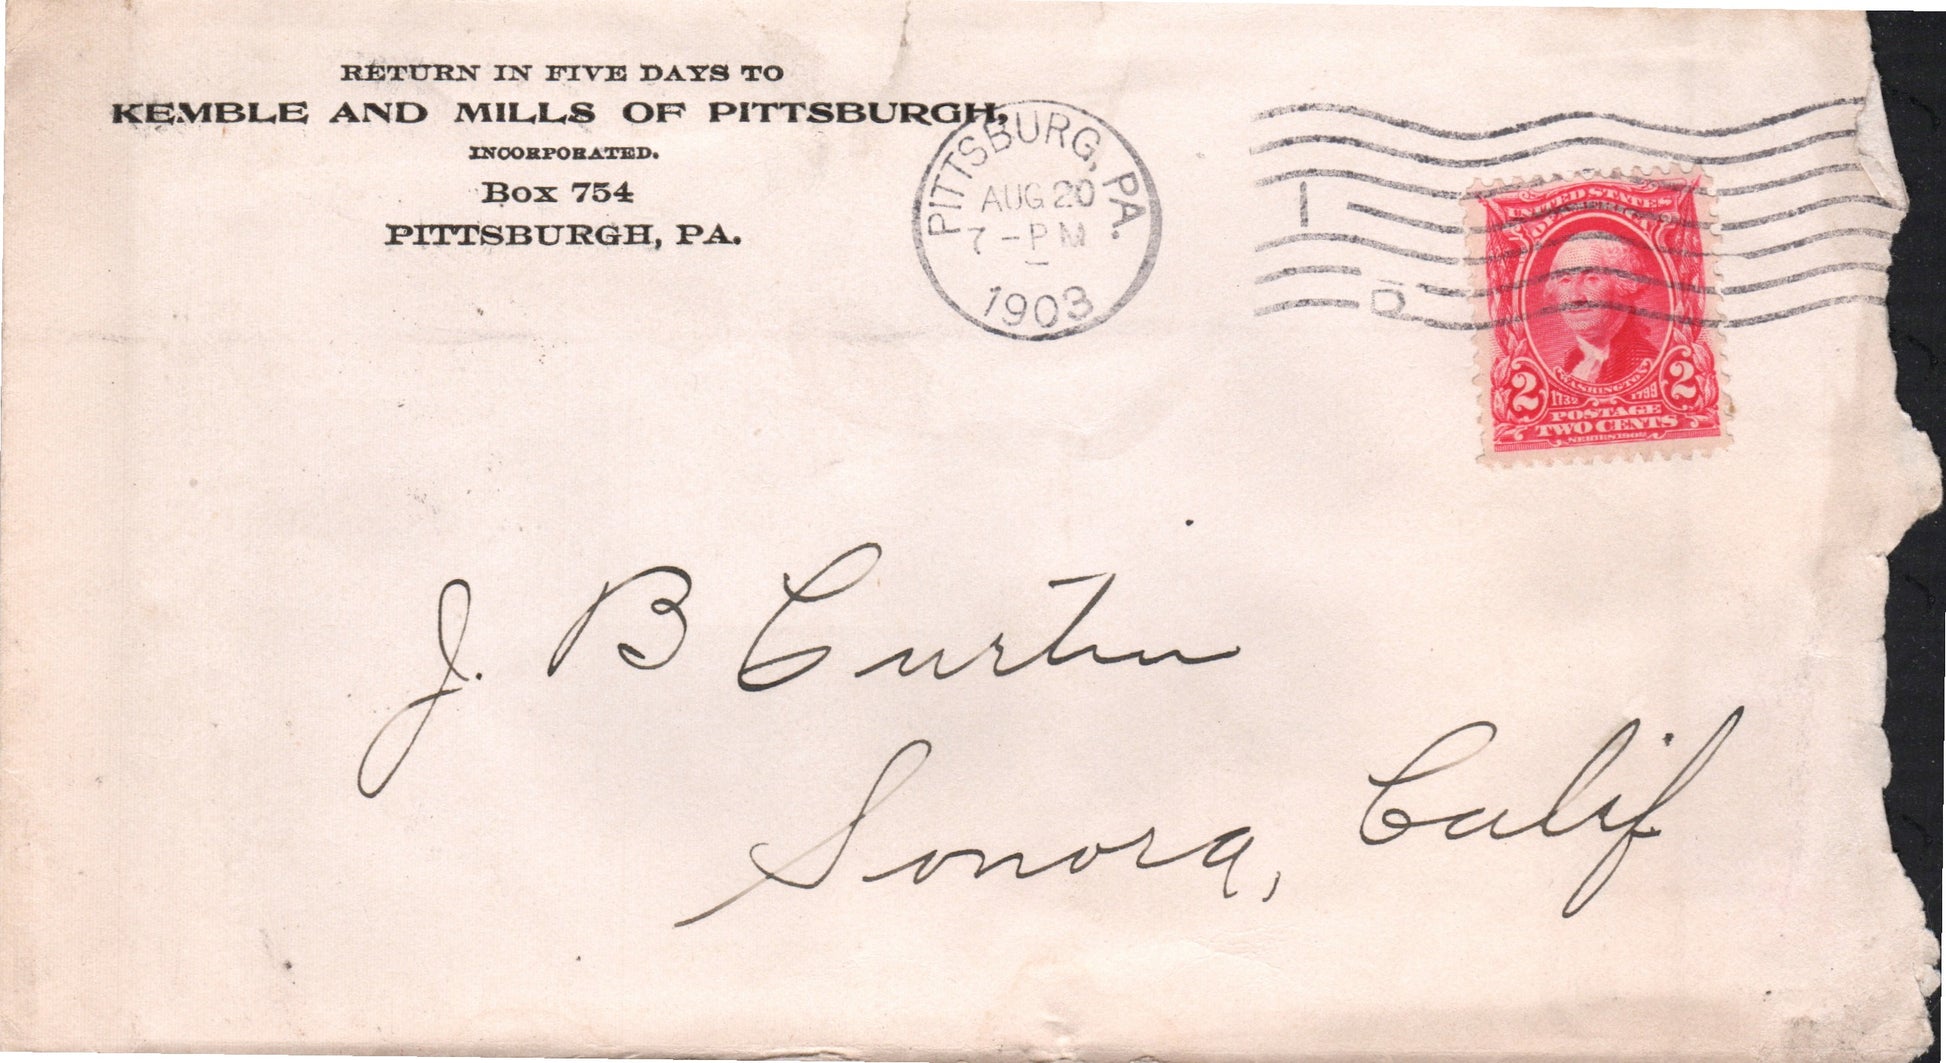 RETURN IN FIVE DAYS TO
KEMBLE AND MILLS OF PITTSBURGH,
INCORPORATED.
Box 754
PITTSBURGH, PA.
PITTSBURG, PA.
AUG 20
7 - PM
1903
I
D
UNITED STATES
OF AMERICA
WASHINGTON
1732 1799
2 2
POSTAGE
TWO CENTS
SERIES 1902
J. B Curtin
Sonora, Calif.